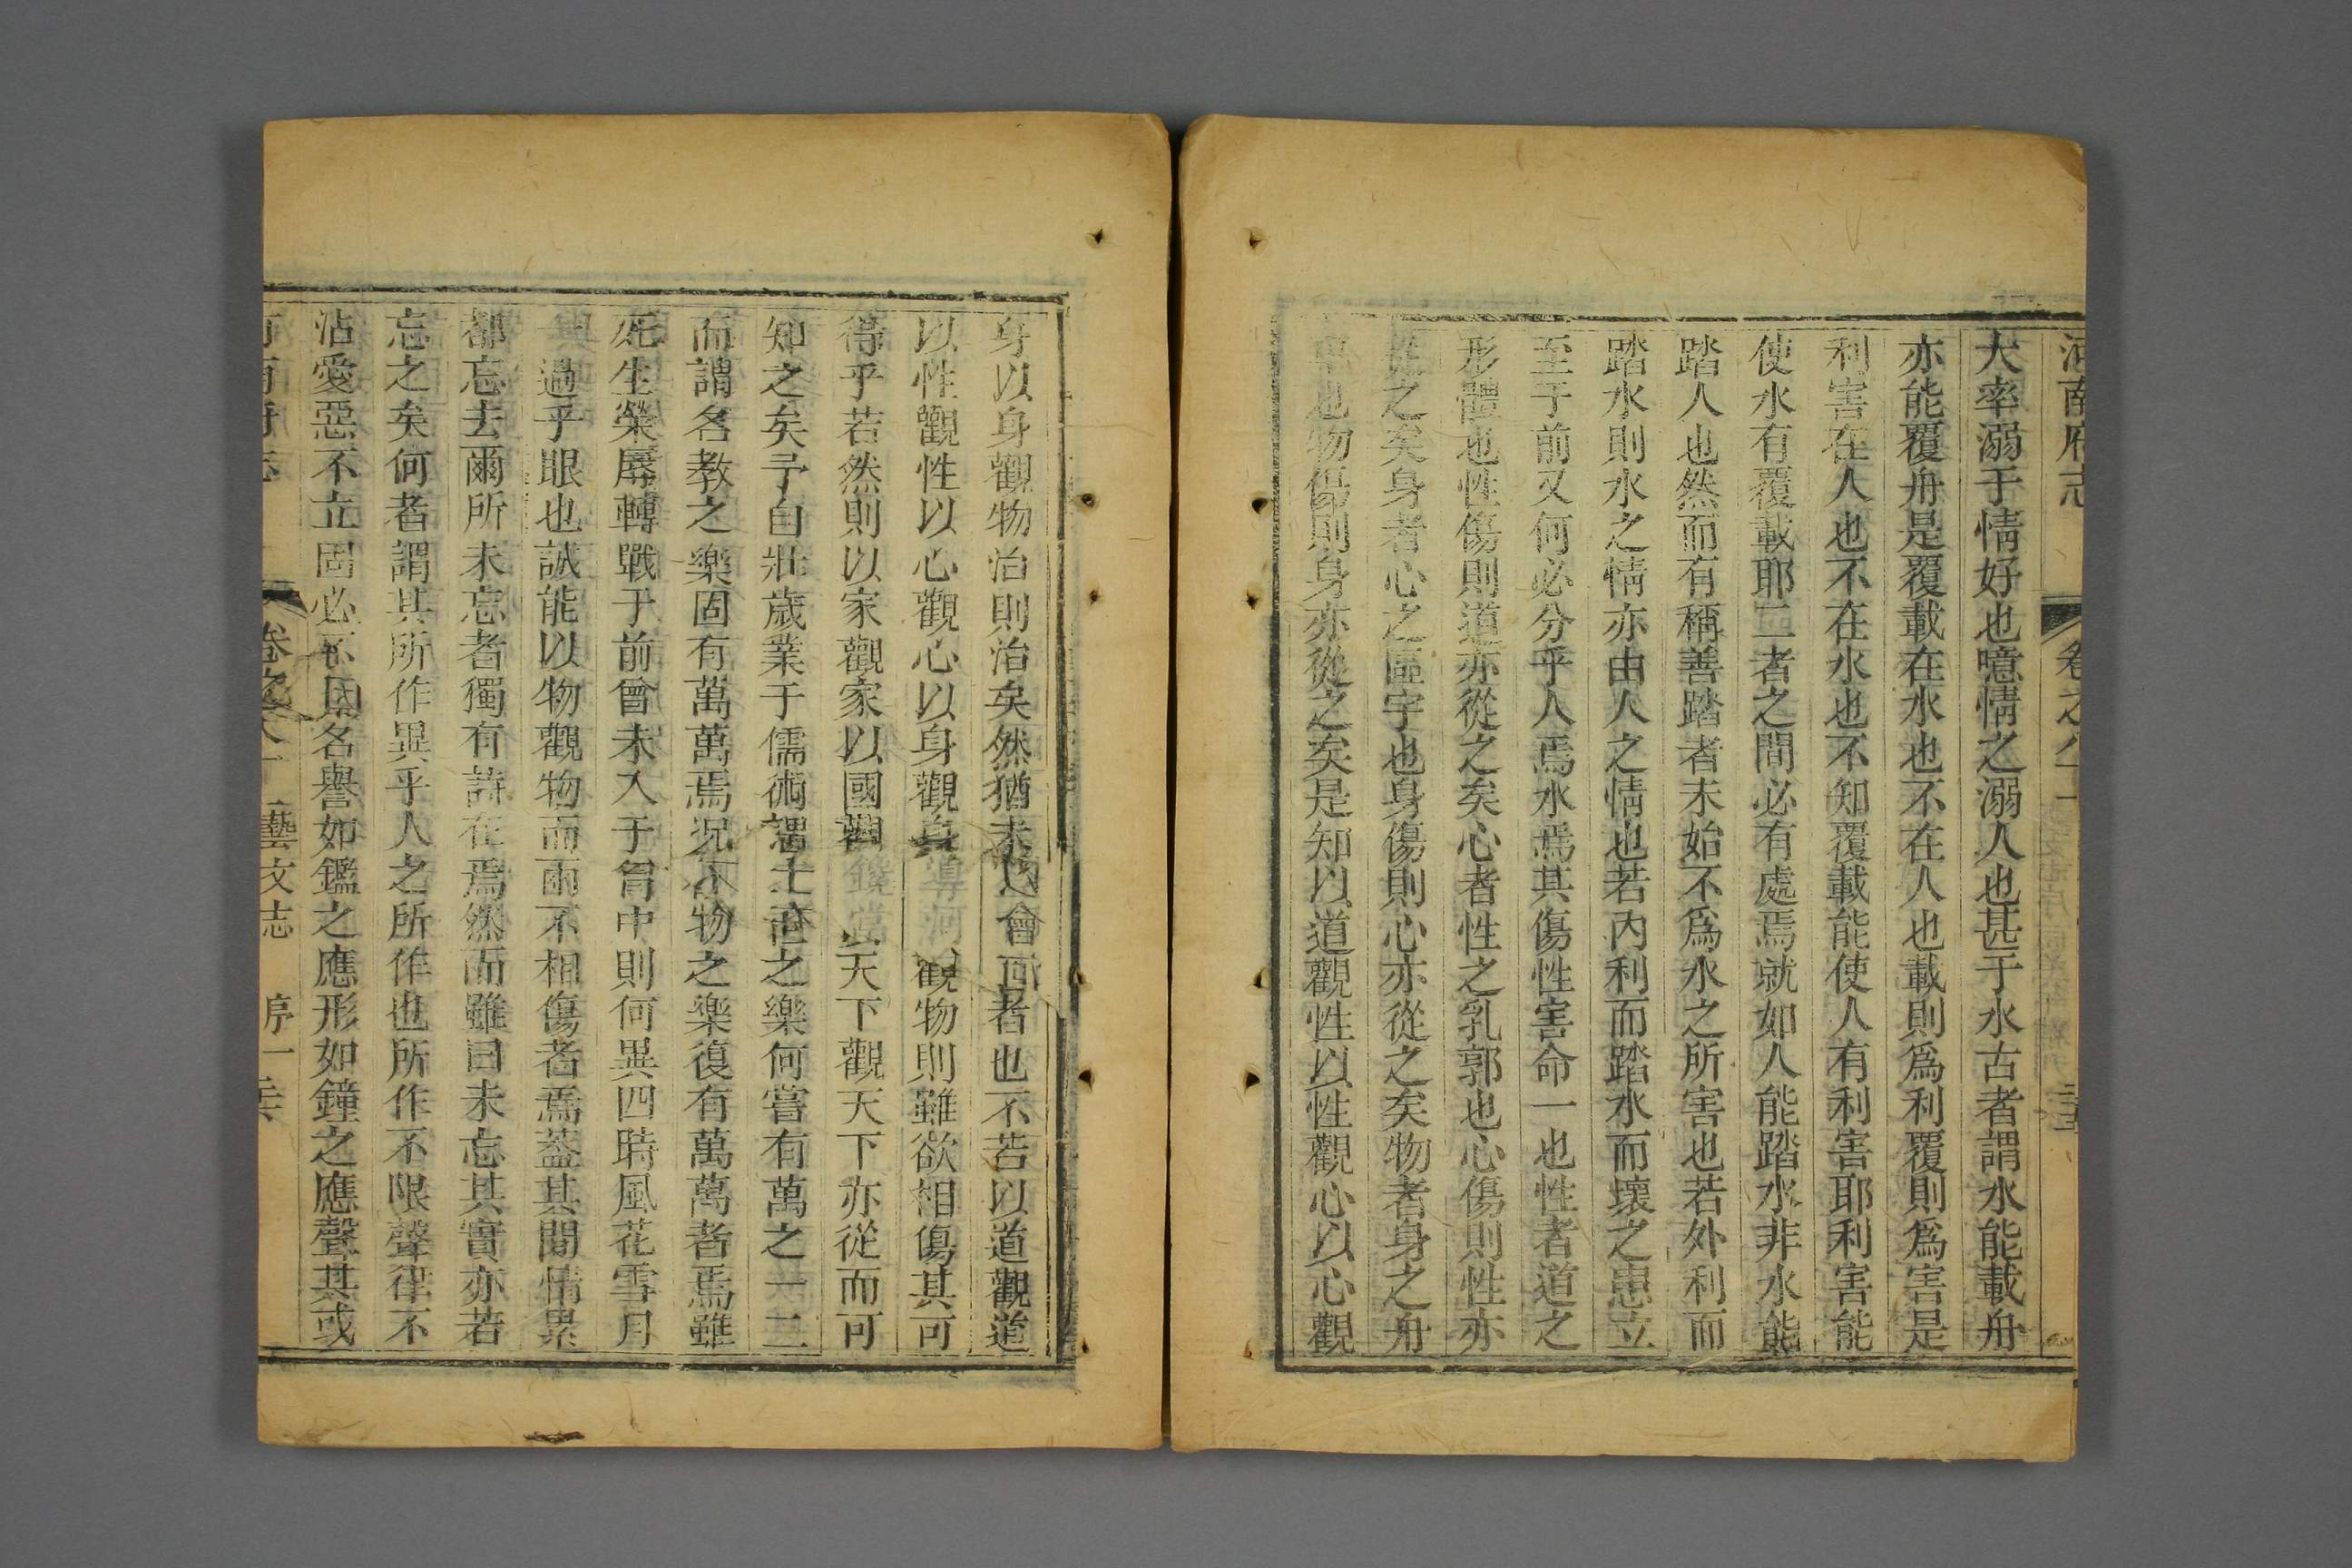 河南府志 卷之八十 三五
大率溺于情好也噫情之溺人也甚于水古者謂水能載舟
亦能覆舟是覆載在水也不在人也載則爲利覆則爲害是
利害在人也不在水也不知覆載能使人有利害耶利害能
使水有覆載耶二者之間必有處焉就如人能踏水非水能
踏人也然而有稱善踏者未始不爲水之所害也若外利而
踏水則水之情亦由人之情也若內利而踏水而壞之患立
至于前又何必分乎人焉水焉其傷性害命一也性者道之
形體也性傷則道亦從之矣心者性之乳郭也心傷則性亦
從之矣身者心之區宇也身傷則心亦從之矣物者身之舟
車也物傷則身亦從之矣是知以道觀性以性觀心以心觀
身以身觀物治則治矣然猶未 會 者也不若以道觀道
以性觀性以心觀心以身觀身 觀物則雖欲相傷其可
得乎若然則以家觀家以國觀 以天下觀天下亦從而可
知之矣予自壯歲業于儒術謂 世之樂何嘗有萬之一二
而謂名教之樂固有萬萬焉況 物之樂復有萬萬者焉雖
死生榮辱轉戰于前曾未入于胷中則何異四時風花雪月
一過乎眼也誠能以物觀物而兩不相傷者焉蓋其間情累
都忘去爾所未忘者獨有詩在焉然而雖曰未忘其實亦若
忘之矣何者謂其所作異乎人之所作也所作不限聲律不
沽愛惡不立固必不 名譽如鑑之應形如鐘之應聲其或
河南府志 卷之八十 藝文志 序一 三六